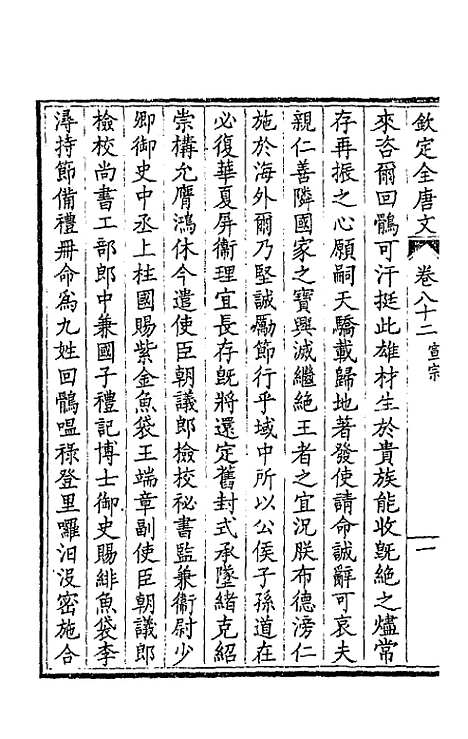 欽定全唐文 卷八十二 宣宗 一
來咨爾回鶻可汗挺此雄材生於貴族能收旣絶之燼常
存再振之心願嗣天驕載歸地著發使請命誠辭可哀夫
親仁善隣國家之寶興滅繼絶王者之宜況朕布德滂仁
施於海外爾乃堅誠勵節行乎域中所以公侯子孫道在
必復華夏屏衞理宜長存旣將還定舊封式承墜緒克紹
崇構允膺鴻休今遣使臣朝議郎檢校祕書監兼衞尉少
卿御史中丞上柱國賜紫金魚袋王端章副使臣朝議郎
檢校尚書工部郎中兼國子禮記博士御史賜緋魚袋李
潯持節備禮冊命為九姓回鶻嗢祿登里囉汩沒密施合